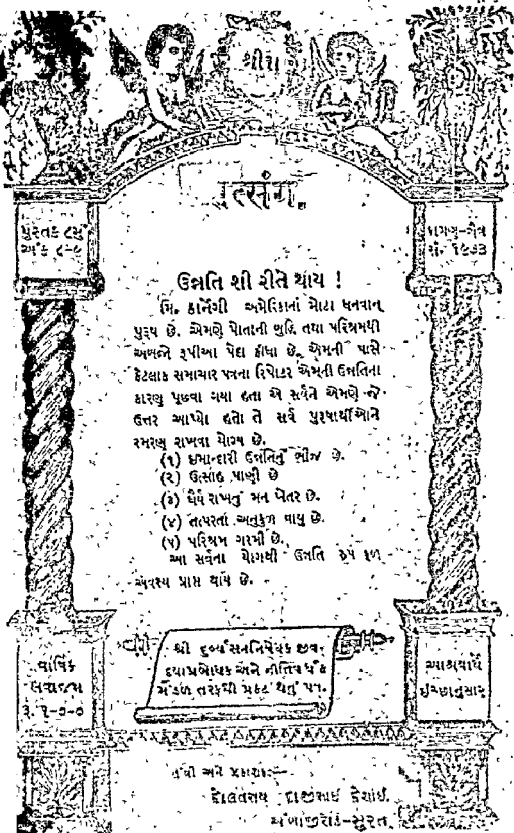 શ્રીશ
સત્સંગ.
પુસ્તક ૮મું
અંક ૮-૯
ફાગણ-ચૈત્ર
સં. ૧૯૭૩
ઉન્નતિ શી રીતે થાય !
મિ. કાર્નેગી અમેરિકાનાં મોટા ધનવાન
પુરૂષ છે. એમણે પોતાની બુદ્ધિ તથા પરિશ્રમથી
અબજો રૂપીઆ પેદા કીધા છે, એમની પાસે
કેટલાક સમાચાર પત્રના રિપોટર એમની ઉન્નતિના
કારણુ પૂછવા ગયા હતા એ સર્વને એમણે જે
ઉત્તર આપ્યો હતો તે સર્વ પુરષાર્થીઓને
સ્મરણ રાખવા યોગ્ય છે.
(૧) ઇમાન્દારી ઉન્નતિનું બીજ છે.
(૨) ઉત્સાહ પાણી છે
(૩) ધૈર્ય રાખવું મન ખેતર છે.
(૪) તત્પરતા અનુકુળ વાયુ છે.
(૫) પરિશ્રમ ગરમી છે.
આ સર્વના યોગથી ઉન્નતિ રૂપ ફળ
અવશ્ય પ્રાપ્ત થાય છે.
શ્રી દુર્વ્યસનનિષેધક જીવ
દયાપ્રબોધક અને નીતિવર્ધક
મંડળ તરફથી પ્રકટ થતું પત્ર.
વાર્ષિક
લવાજમ
રૂ. ૧-૦-૦
આશ્રયાર્થે
ઈચ્છાનુસાર
તંત્રી અને પ્રકાશક:—
દોલતરાય દાજીભાઈ દેશાઈ.
બાળાજીરોડ-સુરત